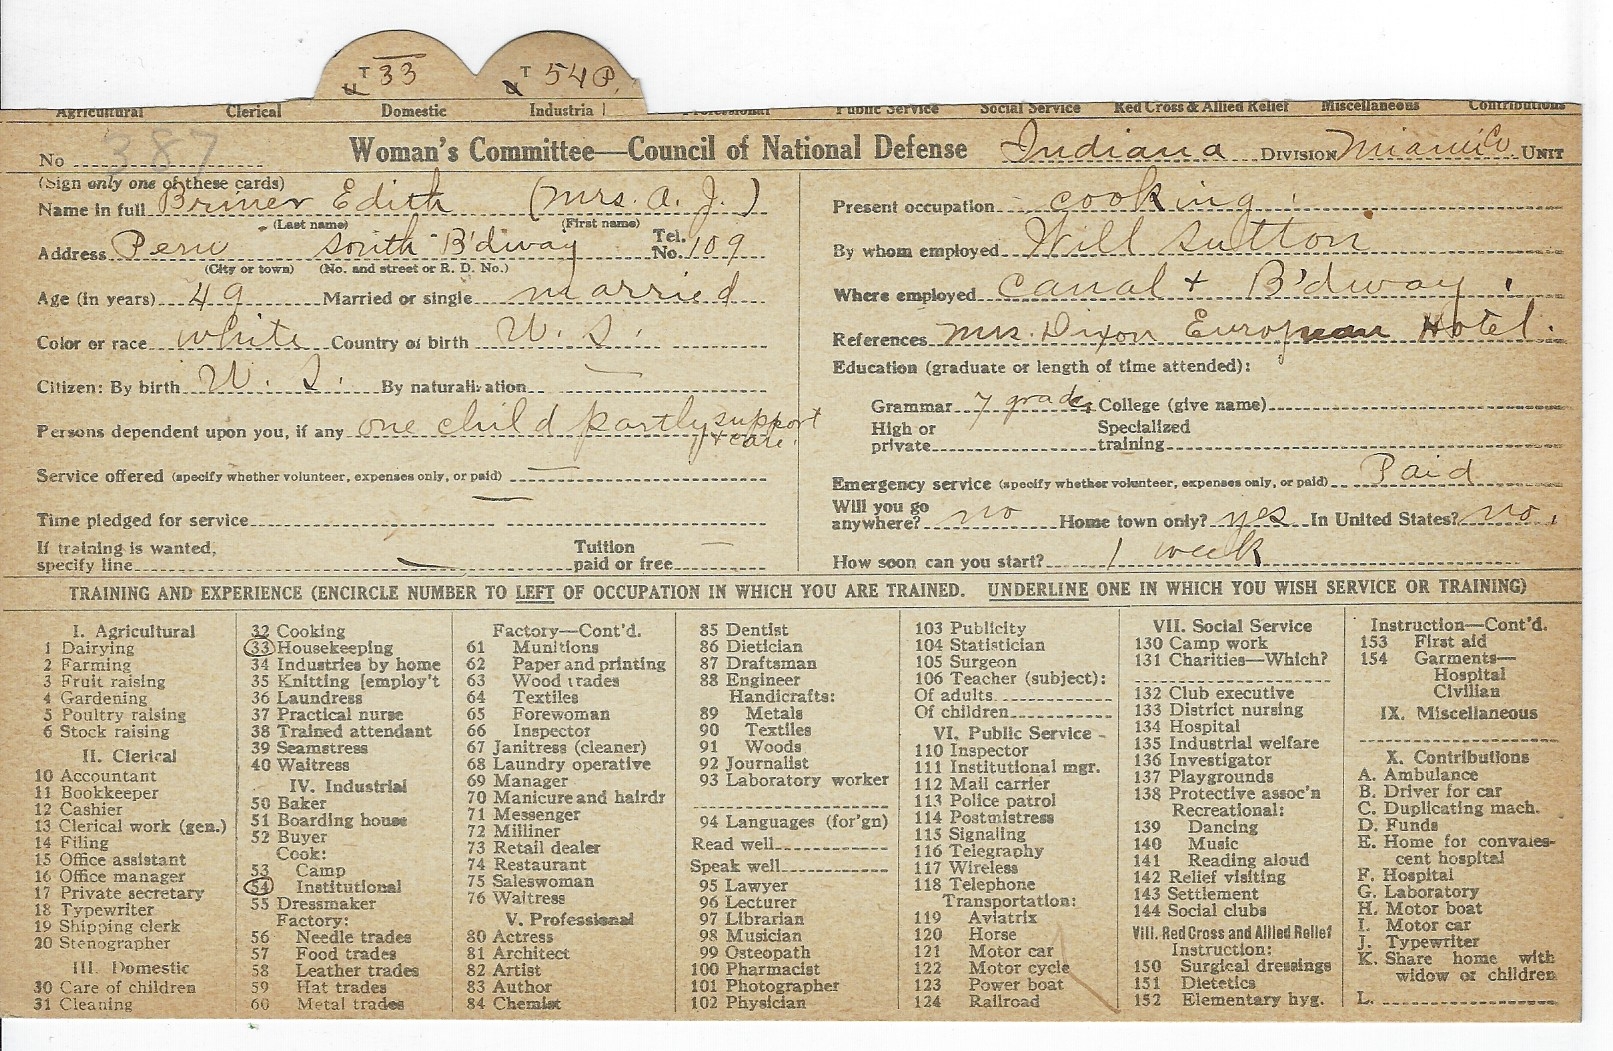 T 33 T 54 P.
U U
Agricultural Clerical Domestic Industrial Professional Public Service Social Service Red Cross & Allied Relief Miscellaneous Contributions
No 387 Woman's Committee—Council of National Defense Indiana DIVISION Miami Co UNIT
(Sign only one of these cards)
Name in full Briner Edith (Mrs. A. J.)
(Last name) (First name)
Address Peru South B'dway Tel. No. 109
(City or town) (No. and street or R. D. No.)
Age (in years) 49 Married or single married
Color or race white Country of birth U. S.
Citizen: By birth U. S. By naturalization —
Persons dependent upon you, if any one child partly support
+ care.
Service offered (specify whether volunteer, expenses only, or paid) —
Time pledged for service —
If training is wanted,
specify line — Tuition
paid or free —
Present occupation cooking.
By whom employed Will Sutton
Where employed Canal + B'dway.
References Mrs. Dixon European Hotel.
Education (graduate or length of time attended):
Grammar 7 grade College (give name)
High or
private Specialized
training
Emergency service (specify whether volunteer, expenses only, or paid) Paid
Will you go
anywhere? no Home town only? yes In United States? no.
How soon can you start? 1 week
TRAINING AND EXPERIENCE (ENCIRCLE NUMBER TO LEFT OF OCCUPATION IN WHICH YOU ARE TRAINED. UNDERLINE ONE IN WHICH YOU WISH SERVICE OR TRAINING)
I. Agricultural
1 Dairying
2 Farming
3 Fruit raising
4 Gardening
5 Poultry raising
6 Stock raising
II. Clerical
10 Accountant
11 Bookkeeper
12 Cashier
13 Clerical work (gen.)
14 Filing
15 Office assistant
16 Office manager
17 Private secretary
18 Typewriter
19 Shipping clerk
20 Stenographer
III. Domestic
30 Care of children
31 Cleaning
32 Cooking
33 Housekeeping
34 Industries by home
35 Knitting [employ't
36 Laundress
37 Practical nurse
38 Trained attendant
39 Seamstress
40 Waitress
IV. Industrial
50 Baker
51 Boarding house
52 Buyer
Cook:
53 Camp
54 Institutional
55 Dressmaker
Factory:
56 Needle trades
57 Food trades
58 Leather trades
59 Hat trades
60 Metal trades
Factory—Cont'd.
61 Munitions
62 Paper and printing
63 Wood trades
64 Textiles
65 Forewoman
66 Inspector
67 Janitress (cleaner)
68 Laundry operative
69 Manager
70 Manicure and hairdr
71 Messenger
72 Milliner
73 Retail dealer
74 Restaurant
75 Saleswoman
76 Waitress
V. Professional
80 Actress
81 Architect
82 Artist
83 Author
84 Chemist
85 Dentist
86 Dietician
87 Draftsman
88 Engineer
Handicrafts:
89 Metals
90 Textiles
91 Woods
92 Journalist
93 Laboratory worker
94 Languages (for'gn)
Read well
Speak well
95 Lawyer
96 Lecturer
97 Librarian
98 Musician
99 Osteopath
100 Pharmacist
101 Photographer
102 Physician
103 Publicity
104 Statistician
105 Surgeon
106 Teacher (subject):
Of adults
Of children
VI. Public Service
110 Inspector
111 Institutional mgr.
112 Mail carrier
113 Police patrol
114 Postmistress
115 Signaling
116 Telegraphy
117 Wireless
118 Telephone
Transportation:
119 Aviatrix
120 Horse
121 Motor car
122 Motor cycle
123 Power boat
124 Railroad
VII. Social Service
130 Camp work
131 Charities—Which?
132 Club executive
133 District nursing
134 Hospital
135 Industrial welfare
136 Investigator
137 Playgrounds
138 Protective assoc'n
Recreational:
139 Dancing
140 Music
141 Reading aloud
142 Relief visiting
143 Settlement
144 Social clubs
VIII. Red Cross and Allied Relief
Instruction:
150 Surgical dressings
151 Dietetics
152 Elementary hyg.
Instruction—Cont'd.
153 First aid
154 Garments—
Hospital
Civilian
IX. Miscellaneous
X. Contributions
A. Ambulance
B. Driver for car
C. Duplicating mach.
D. Funds
E. Home for convales-
cent hospital
F. Hospital
G. Laboratory
H. Motor boat
I. Motor car
J. Typewriter
K. Share home with
widow or children
L.